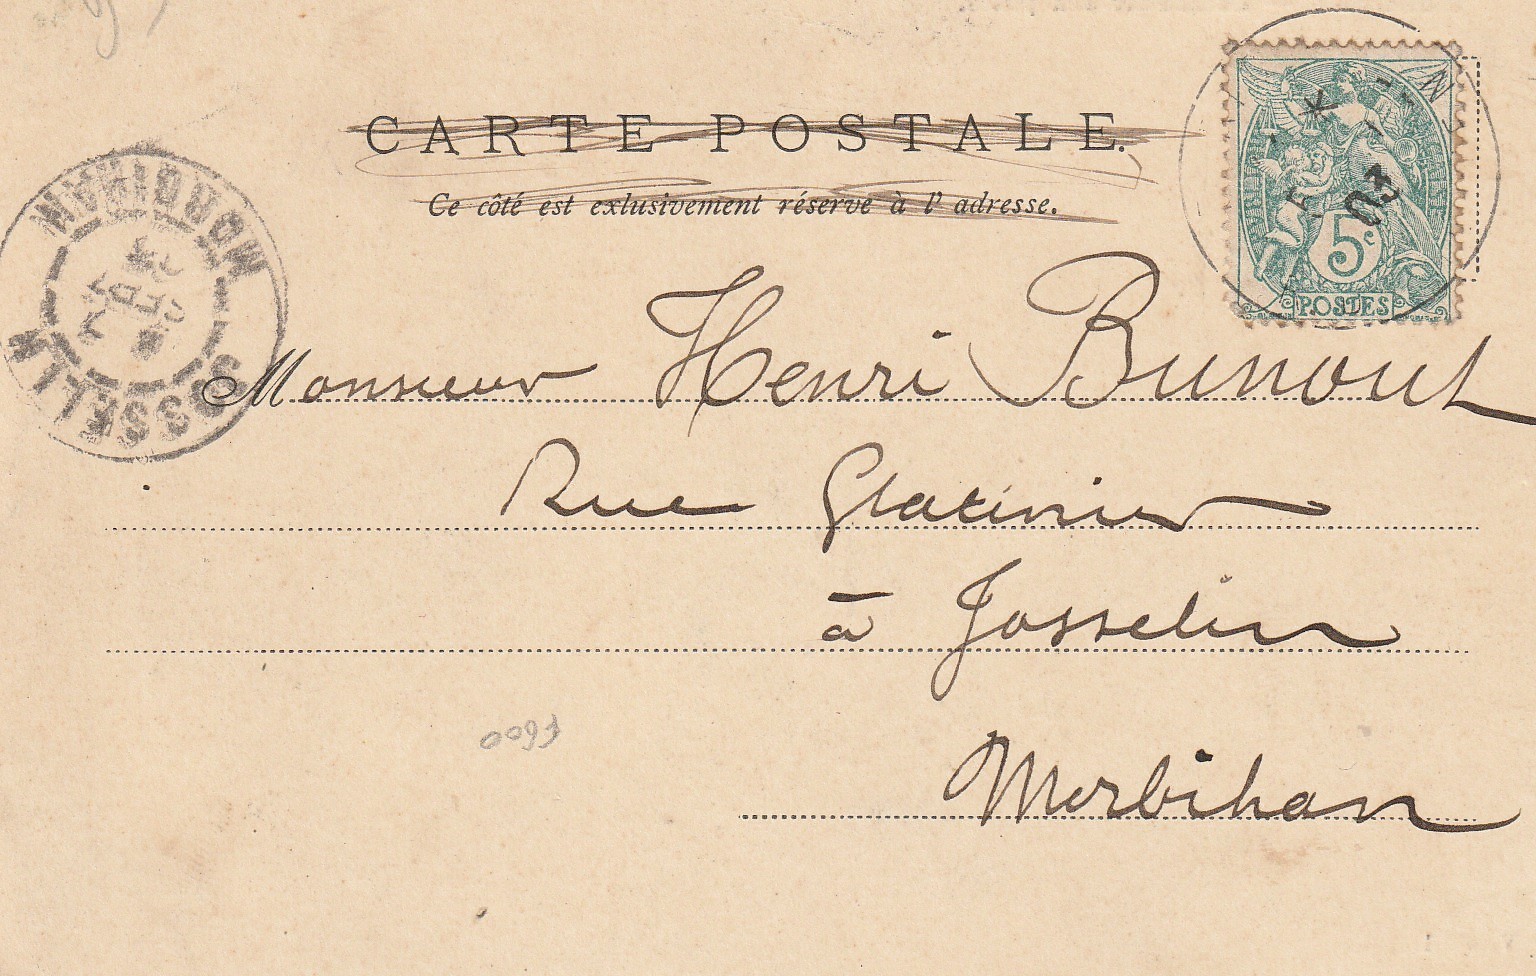 CARTE POSTALE.
Ce côté est exlusivement réserve à l' adresse.
03
5c
POSTES
MORBIHAN
Monsieur Henri Bunout
Rue Glatinier
à Josselin
Morbihan